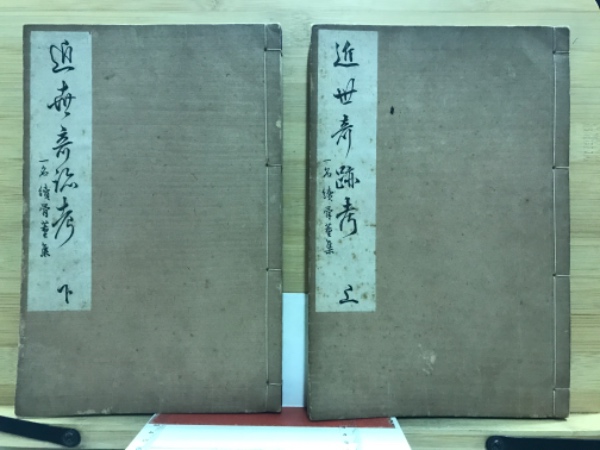 近世奇跡考
一名 續骨董集
上
近世奇跡考
一名 續骨董集
下